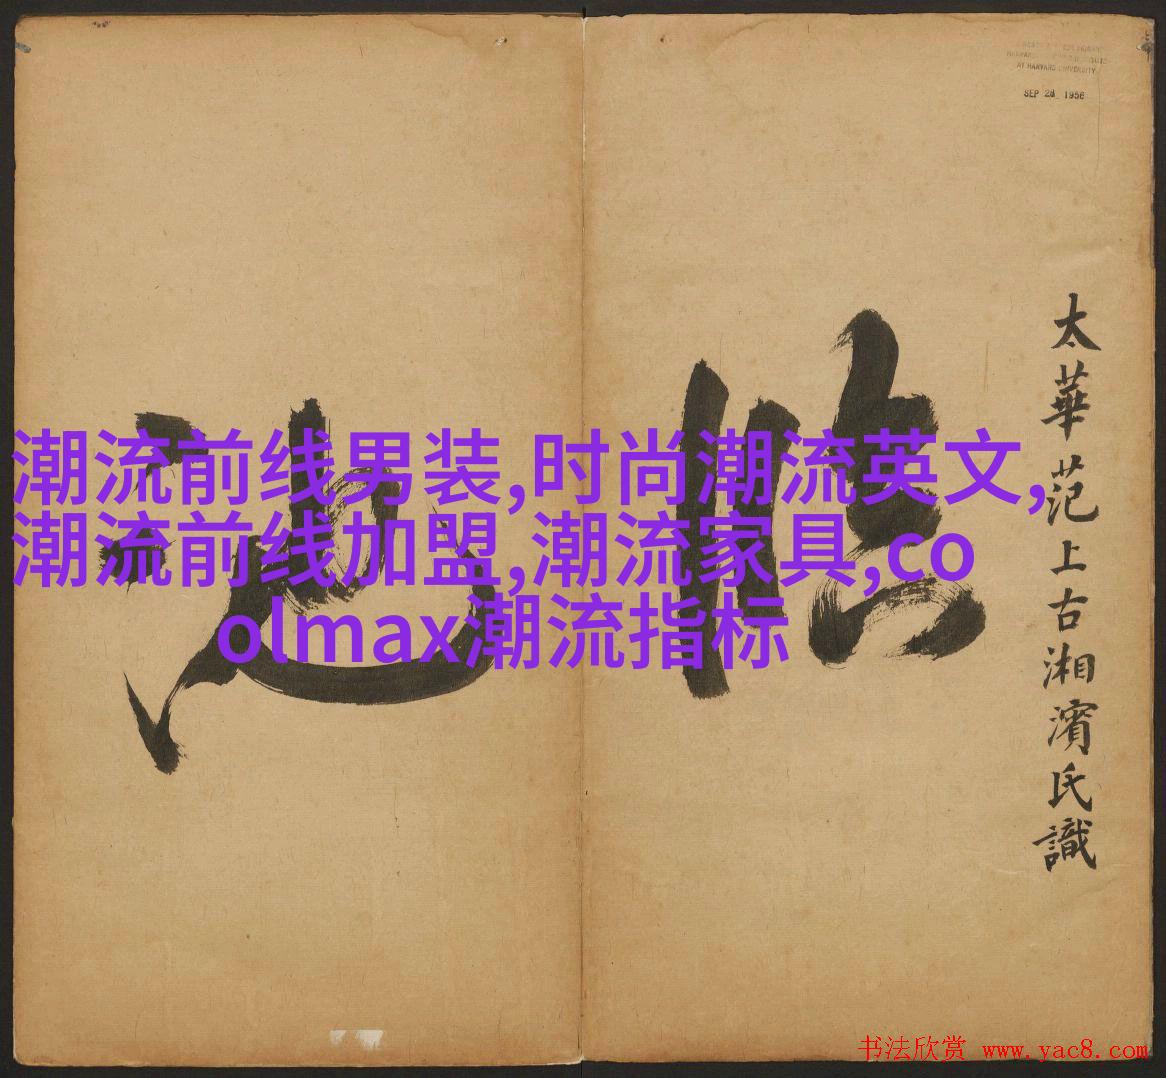 AT HARVARD UNIVERSITY
SEP 28 1956
太華范上古湘濱氏識
潮流前线男装,时尚潮流英文,
潮流前线加盟,潮流家具,co
olmax潮流指标
书法欣赏 www.yac8.com